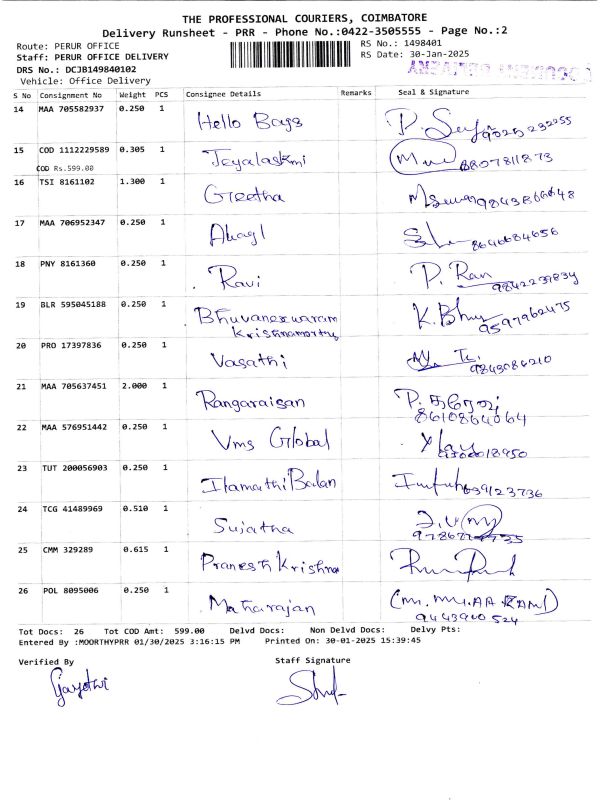 THE PROFESSIONAL COURIERS, COIMBATORE
Delivery Runsheet - PRR - Phone No.:0422-3505555 - Page No.:2
Route: PERUR OFFICE RS No.: 1498401
Staff: PERUR OFFICE DELIVERY RS Date: 30-Jan-2025
DRS No.: DCJB149840102
Vehicle: Office Delivery
S No Consignment No Weight PCS Consignee Details Remarks Seal & Signature
14 MAA 705582937 0.250 1 Hello Bags
15 COD 1112229589 0.305 1 Jeyalaskmi 8807811873
COD Rs.599.00
16 TSI 8161102 1.300 1 Greetha
17 MAA 706952347 0.250 1 8646684656
18 PNY 8161360 0.250 1 Ravi P. Ravi
19 BLR 595045188 0.250 1 Bhuvaneswaram K. Bhuv
Krishnamorthy 9597962475
20 PRO 17397836 0.250 1 Vasathi 9843086210
21 MAA 705637451 2.000 1 Rangaraisan
8610864064
22 MAA 576951442 0.250 1 Vms Global
23 TUT 200056903 0.250 1 Ilamathi Balan
24 TCG 41489969 0.510 1 Sujatha
25 CMM 329289 0.615 1 Pranesh Krishna
26 POL 8095006 0.250 1 Maharajan
9443900524
Tot Docs: 26 Tot COD Amt: 599.00 Delvd Docs: Non Delvd Docs: Delvy Pts:
Entered By :MOORTHYPRR 01/30/2025 3:16:15 PM Printed On: 30-01-2025 15:39:45
Verified By Staff Signature
Gayathri